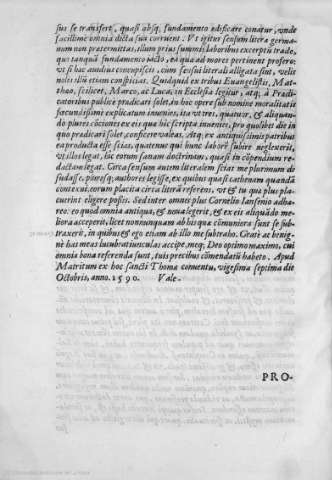 sus se transfert, quasi absq; fundamento ædificare conatur, vnde
facillimè omnia dicta sua corruent. Vt igitur sensum literæ germa-
num non prætermittas, illum prius summis laboribus excerptū trado,
quo tanquā fundamento iacto, ea quæ ad mores pertinent profero:
vt si hæc auidius concupiscis, cum sensui literali alligata sint, velis
nolis illū etiam conspicias. Quidquid ex tribus Euangelistis, Mat-
thæo, scilicet, Marco, ac Luca, in Ecclesia legitur, atq; à Prædi-
catoribus publicè prædicari solet, in hoc opere sub nomine moralitatis
fœcundissimè explicatum inuenies, ita vt tres, quatuor, & aliquan-
do plures cōciones ex eis quæ hîc scripta inuenies, pro quolibet die in
quo prædicari solet, conficere valeas. Atq; ex antiquissimis patribus
ea producta esse scias, quatenus qui hunc laborē subire neglexerit,
vt illos legat, hîc eorum sanam doctrinam, quasi in cōpendium re-
dactam legat. Circa sensum autem literalem sciat me plurimum di
sudasse, pluresq; authores legisse, ex quibus quasi cathenam quandā
contexui, eorum placita circa literā referens, vt & tu quæ plus pla-
cuerint eligere possis. Sed inter omnes plus Cornelio Iansenio adhæ-
reo: eo quòd omnia antiqua, & noua legerit, & ex eis aliquādo me-
liora acceperit, licet nonnunquam ab his quæ cōmuniora sunt se sub-
traxerit, in quibus & ego etiam ab illo me subtraho. Gratè ac benig-
nè has meas lucubratiunculas accipe, meq; Deo optimo maximo, cui
omnia bona referenda sunt, tuis precibus cōmendatū habeto. Apud
Matritum ex hoc sancti Thomæ conuentu, vigesima septima die
Octobris, anno. 1590. Vale.
PRO-